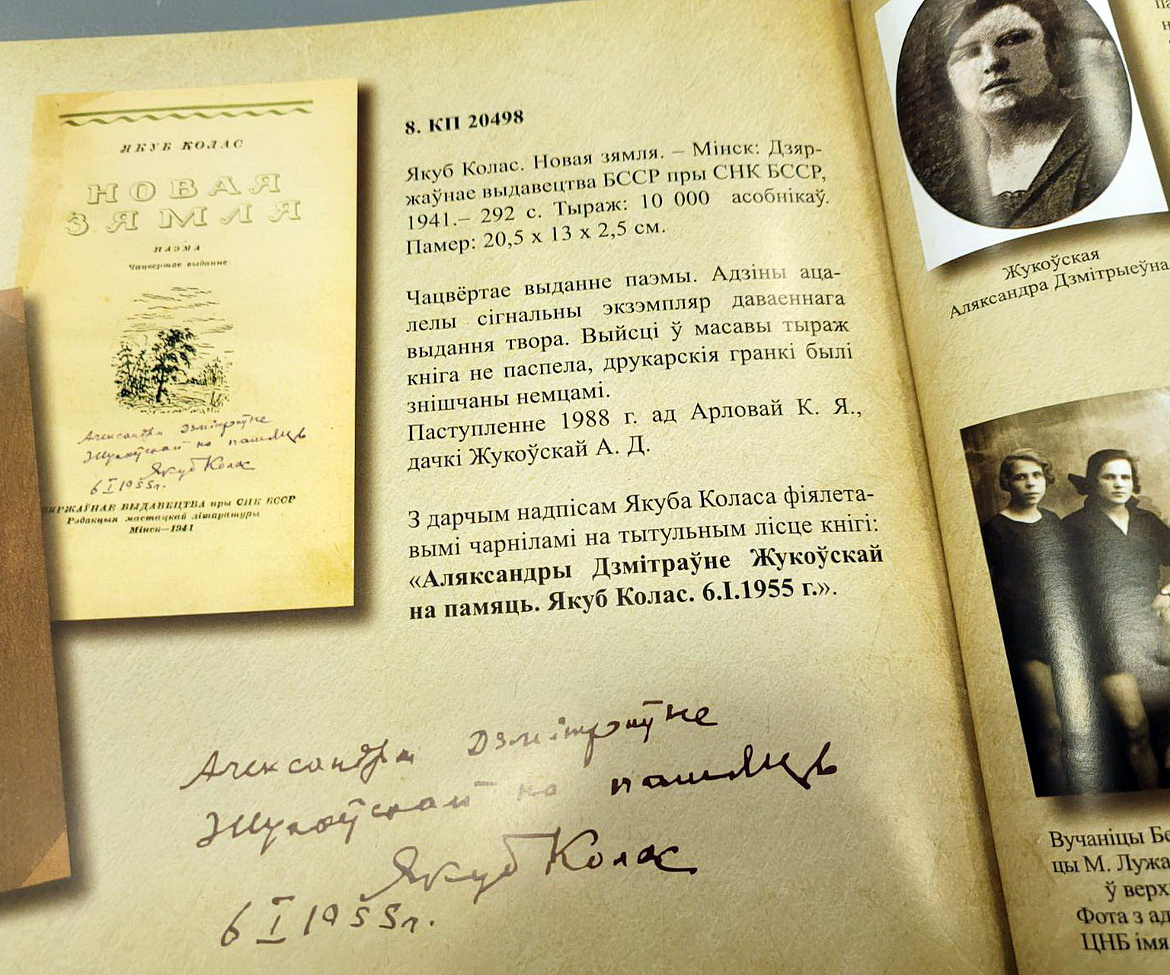 ЯКУБ КОЛАС
НОВАЯ
ЗЯМЛЯ
ПАЭМА
Чацвертае выданне
Александры Дзмітраўне
Жукоўскай на памяць
Якуб Колас
6 I 1955 г.
ДЗЯРЖАЎНАЕ ВЫДАВЕЦТВА пры СНК БССР
Рэдакцыя мастацкай літаратуры
Мінск—1941
8. КП 20498
Якуб Колас. Новая зямля. – Мінск: Дзяр-
жаўнае выдавецтва БССР пры СНК БССР,
1941.– 292 с. Тыраж: 10 000 асобнікаў.
Памер: 20,5 х 13 х 2,5 см.
Чацвёртае выданне паэмы. Адзіны аца-
лелы сігнальны экзэмпляр даваеннага
выдання твора. Выйсці ў масавы тыраж
кніга не паспела, друкарскія гранкі былі
знішчаны немцамі.
Паступленне 1988 г. ад Арловай К. Я.,
дачкі Жукоўскай А. Д.
З дарчым надпісам Якуба Коласа фіялета-
вымі чарніламі на тытульным лісце кнігі:
«Аляксандры Дзмітраўне Жукоўскай
на памяць. Якуб Колас. 6.I.1955 г.».
Александры Дзмітраўне
Жукоўскай на памяць
Якуб Колас
6 I 1955 г.
Жукоўская
Аляксандра Дзмітрыеўна
Вучаніцы Бе
цы М. Лужа
ў верх
Фота з ад
ЦНБ імя